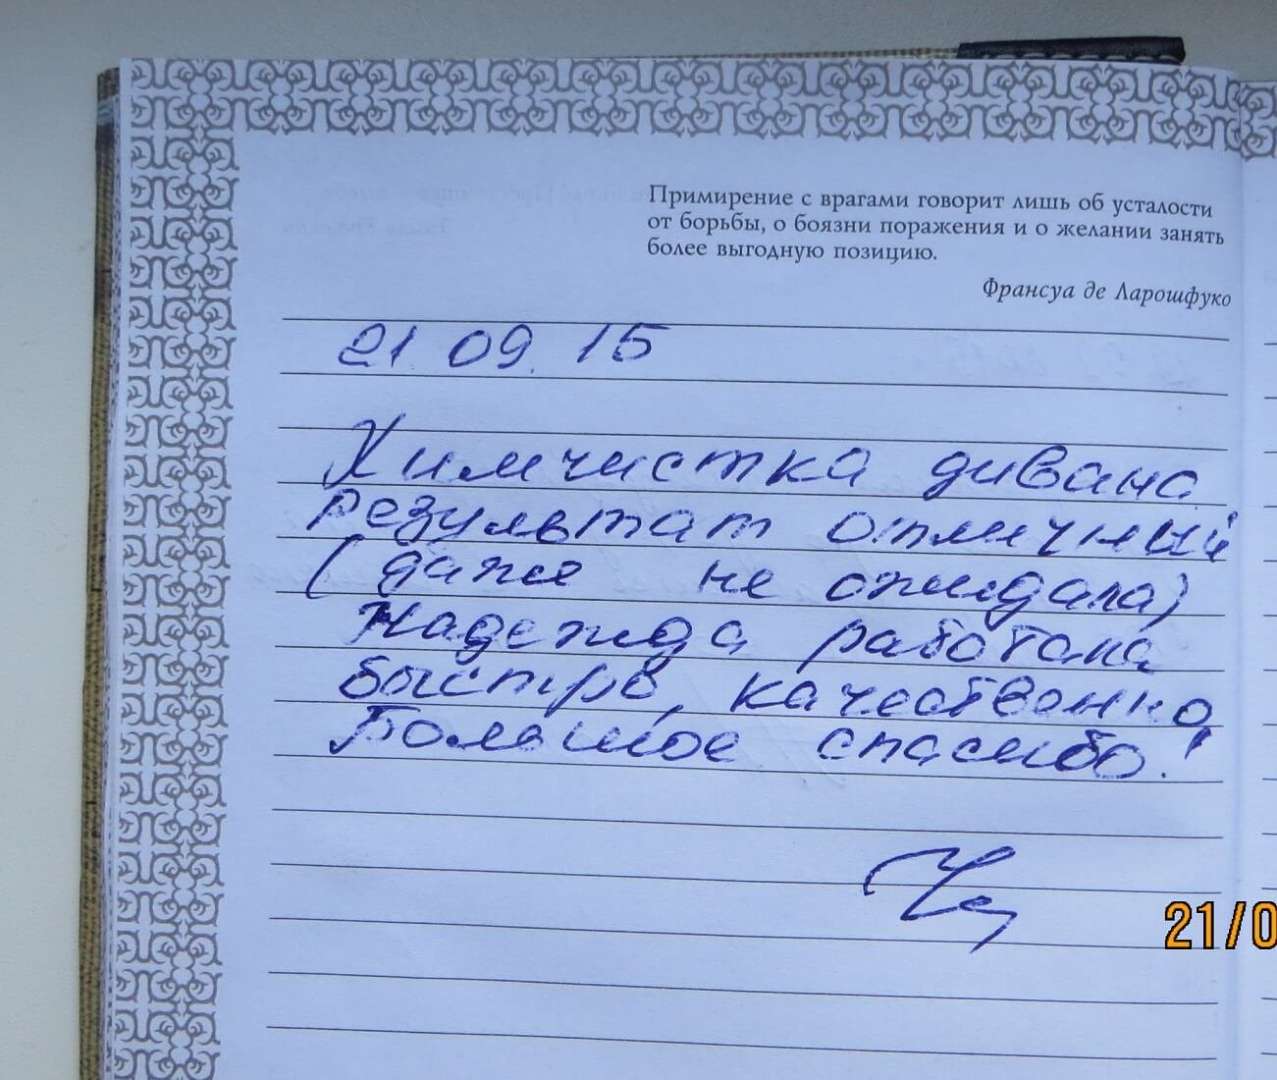 Примирение с врагами говорит лишь об усталости
от борьбы, о боязни поражения и о желании занять
более выгодную позицию.
Франсуа де Ларошфуко
21 09. 15
Химчистка дивана
результат отличный
(даже не ожидала)
Надежда работала
быстро, качественно,
Большое спасибо!
21/0